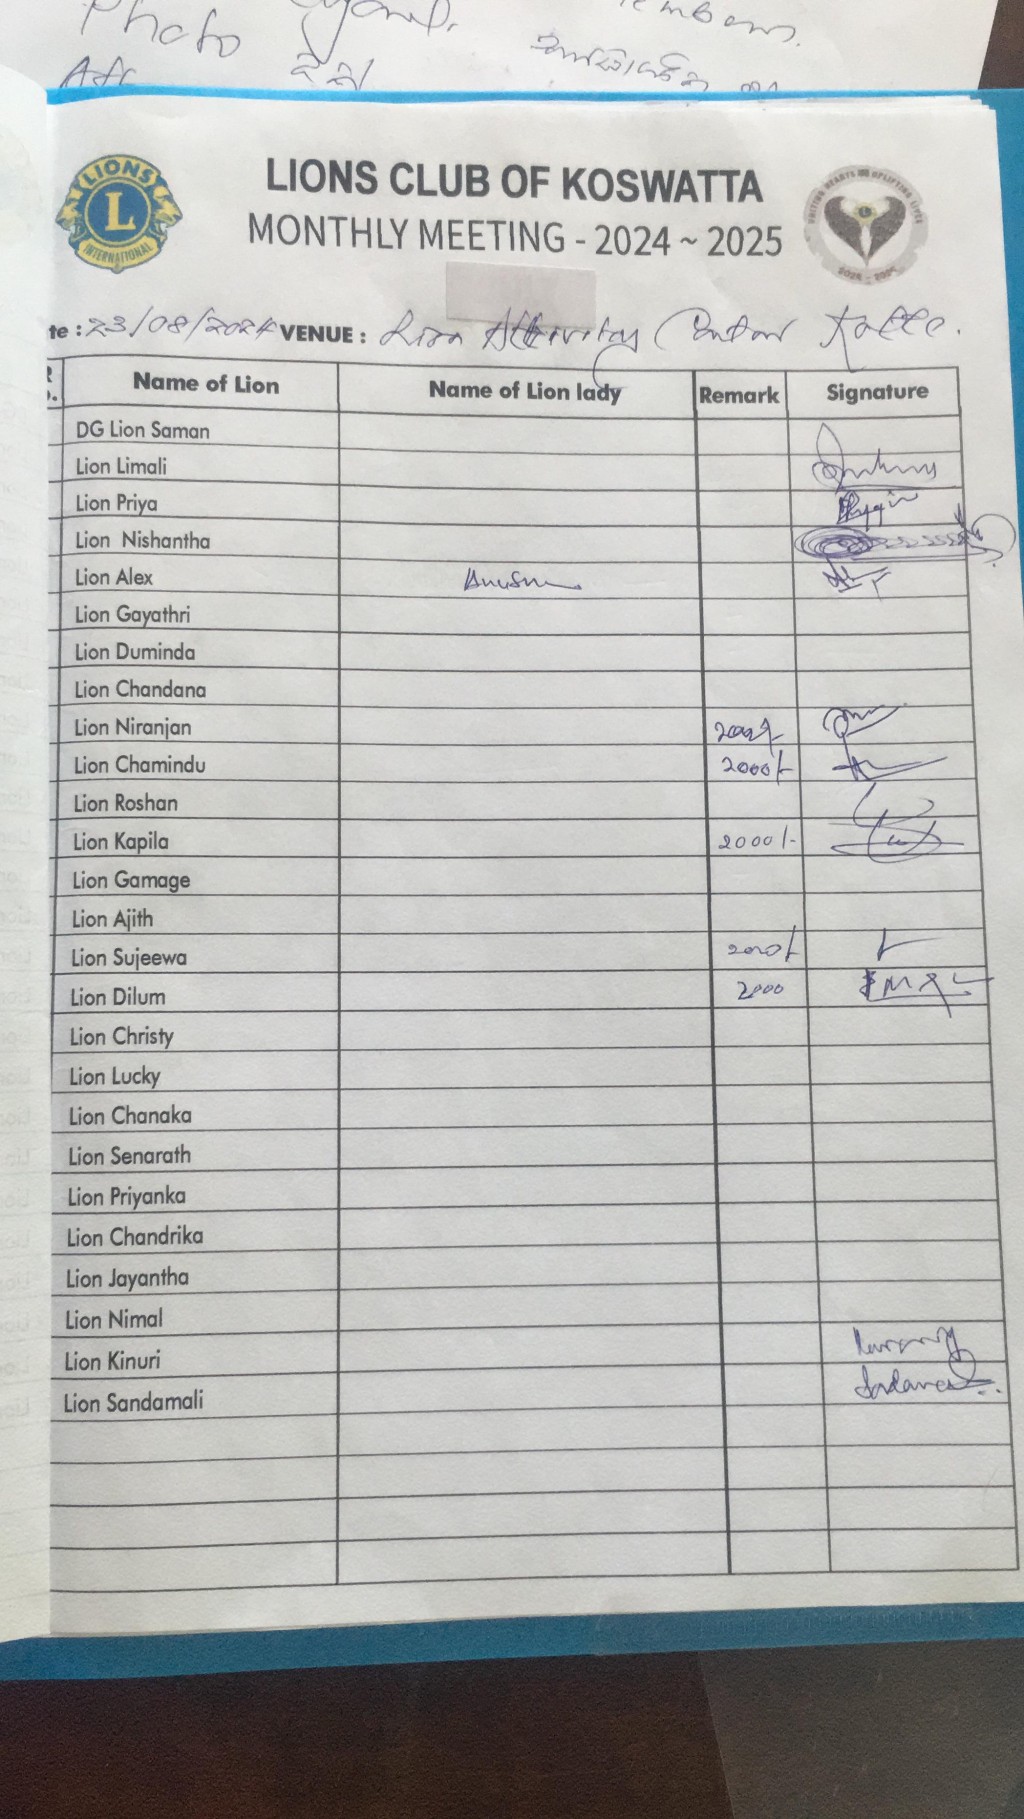 Photo
LIONS
L
INTERNATIONAL
LIONS CLUB OF KOSWATTA
MONTHLY MEETING - 2024 ~ 2025
UNITING HEARTS UPLIFTING LIVES
2024 - 2025
te : 23/08/2024 VENUE : Lion Activity Kotte.
R Name of Lion Name of Lion lady Remark Signature
DG Lion Saman
Lion Limali
Lion Priya
Lion Nishantha
Lion Alex
Lion Gayathri
Lion Duminda
Lion Chandana
Lion Niranjan
Lion Chamindu 2000/-
Lion Roshan
Lion Kapila 2000/-
Lion Gamage
Lion Ajith
Lion Sujeewa 2000/-
Lion Dilum 2000
Lion Christy
Lion Lucky
Lion Chanaka
Lion Senarath
Lion Priyanka
Lion Chandrika
Lion Jayantha
Lion Nimal
Lion Kinuri
Lion Sandamali